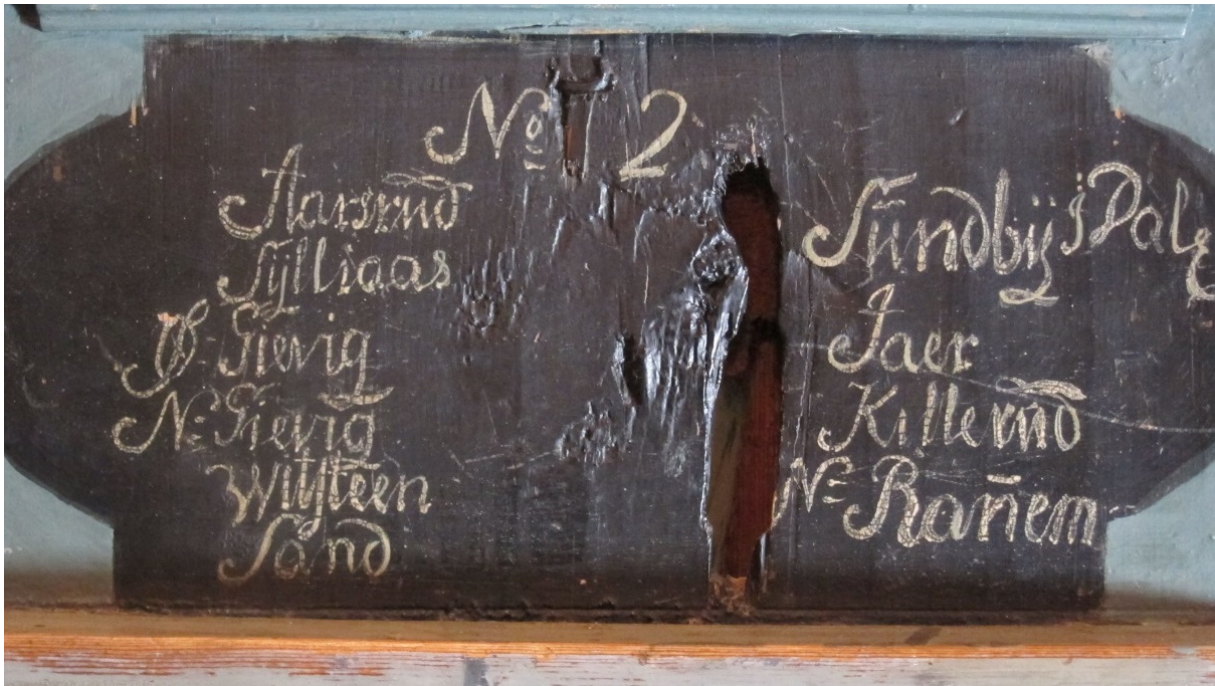 No 2
Aarsrud
Sylliaas
Ø: Gievig
N: Gievig
Witsteen
Sand
Sundbÿ i Dal
Jaer
Killerud
N: Rañem